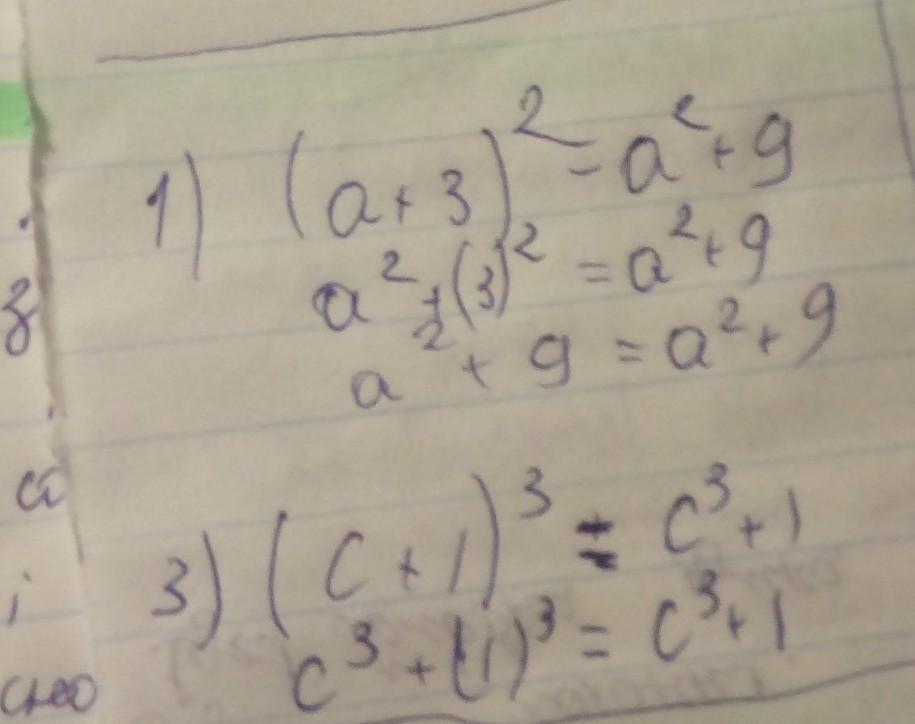 1) (a+3)² = a²+9
a²+(3)² = a²+9
a² + 9 = a²+9
3) (c+1)³ = c³+1
c³+(1)³ = c³+1